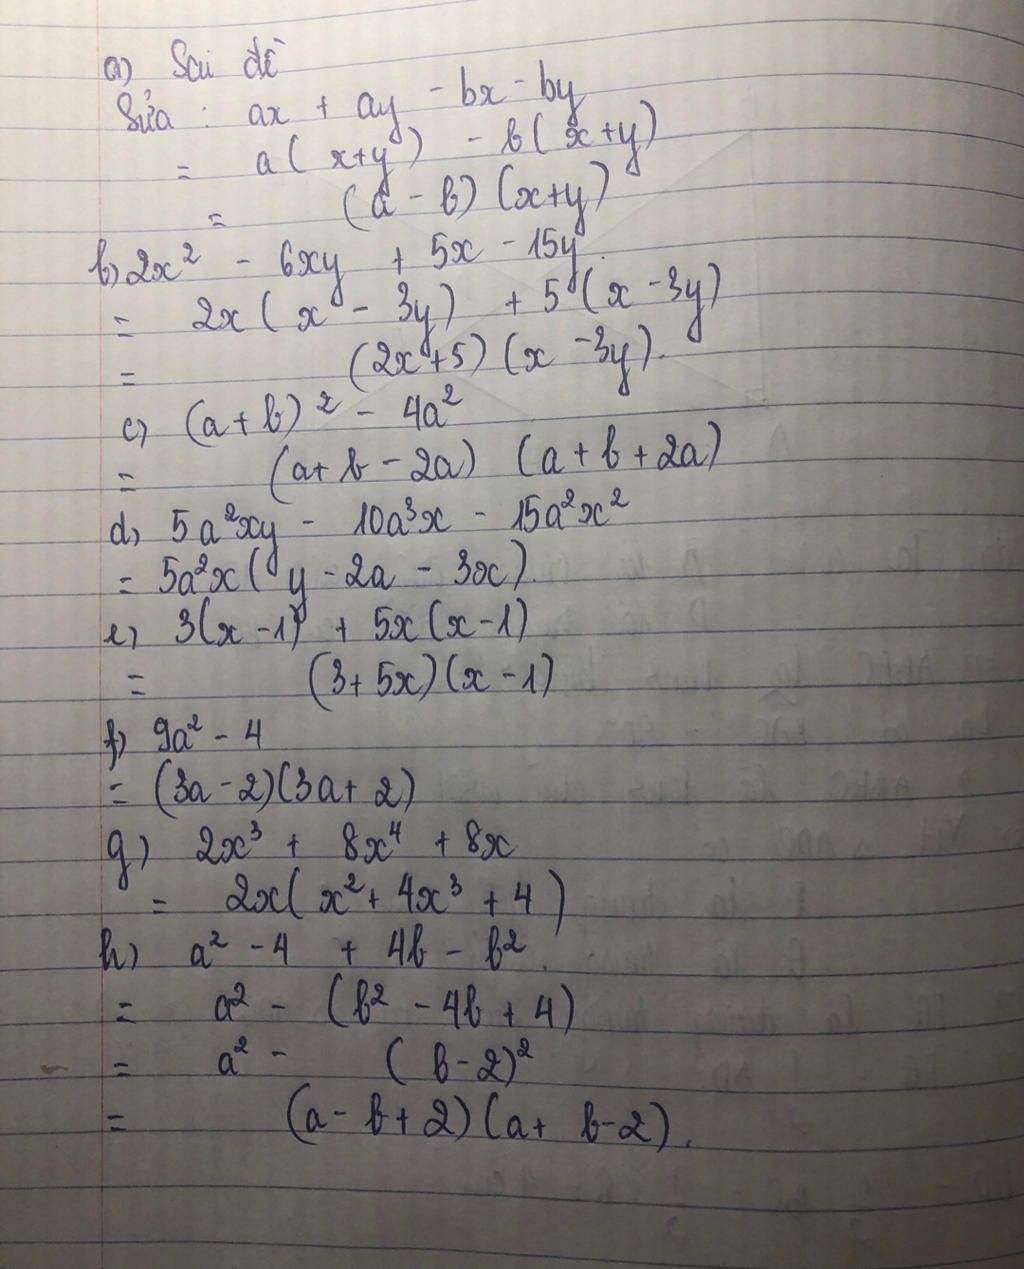 a) Sai đề
Sửa : ax + ay - bx - by
= a( x+y ) - b( x+y)
= (a - b) (x+y)
b) 2x² - 6xy + 5x - 15y.
= 2x( x - 3y) + 5 (x - 3y)
= (2x+5) (x - 3y).
c) (a+b)² - 4a²
= (a+b - 2a) (a + b + 2a)
d) 5a²xy - 10a³x - 15a²x²
= 5a²x( y - 2a - 3x).
e) 3(x - 1) + 5x (x - 1)
= (3 + 5x)(x - 1)
f) 9a² - 4
= (3a - 2)(3a + 2)
g) 2x³ + 8x⁴ + 8x
= 2x( x² + 4x³ + 4 )
h) a² - 4 + 4b - b².
= a² - (b² - 4b + 4)
= a² - ( b - 2)²
= (a - b + 2) (a + b - 2).